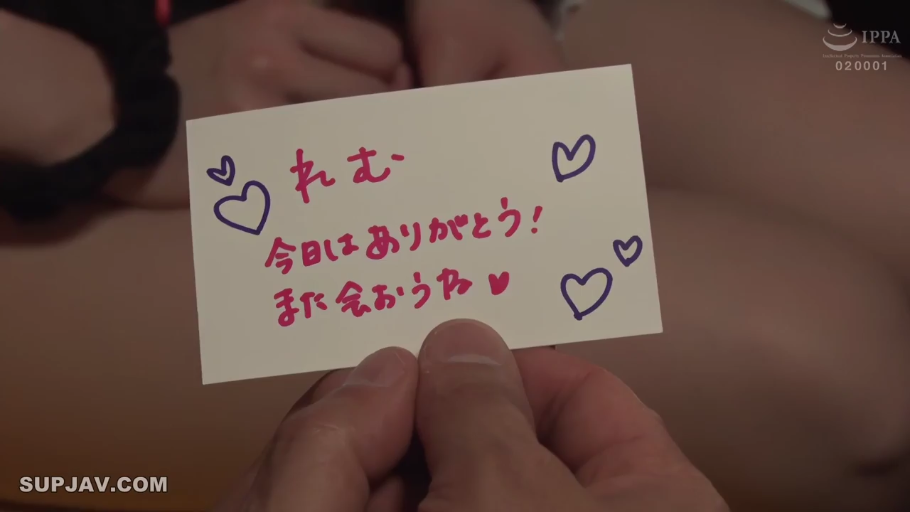 IPPA
020001
れむ
今日はありがとう!
また会おうね♥
SUPJAV.COM